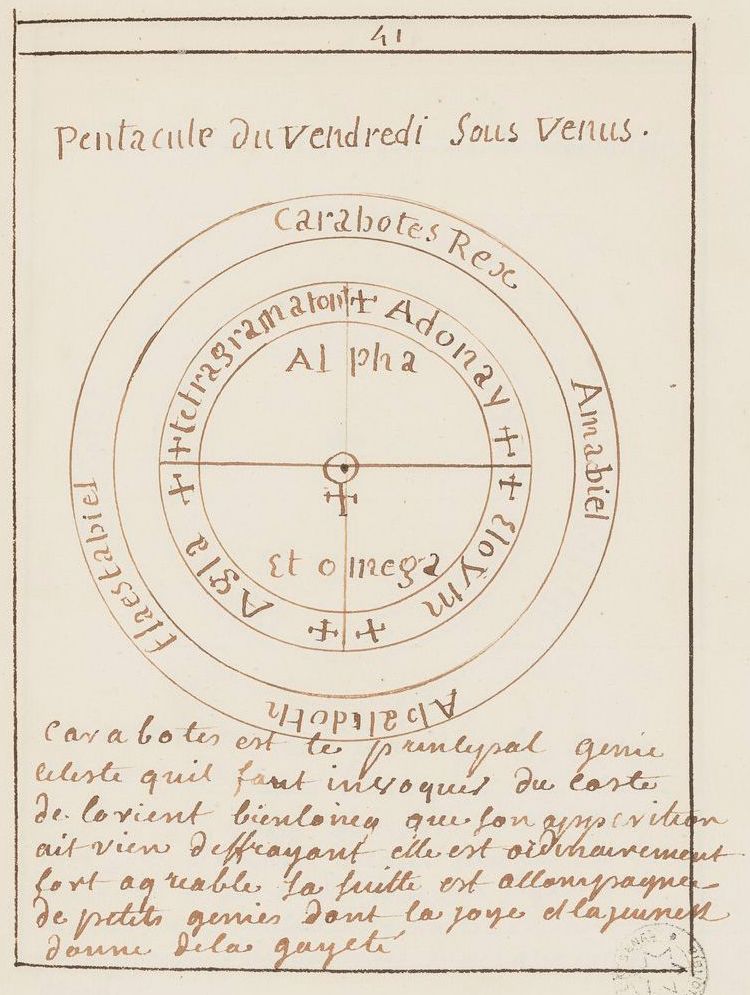 41
Pentacule du Vendredi Sous Venus.
Carabotes Rex
Amabiel
Abalidoth
Flaestabiel
+ tetragramaton + Adonay +
+ Eloÿm +
+ Agla +
Alpha
Et omega
Carabotes est le principal genie
celeste quil faut invoquer du coste
de lorient bienloineg que son apparition
ait rien deffrayant elle est ordinairement
fort agreable sa suitte est accompagnee
de petits genies dont la joye et la jeuness
donne dela gayeté